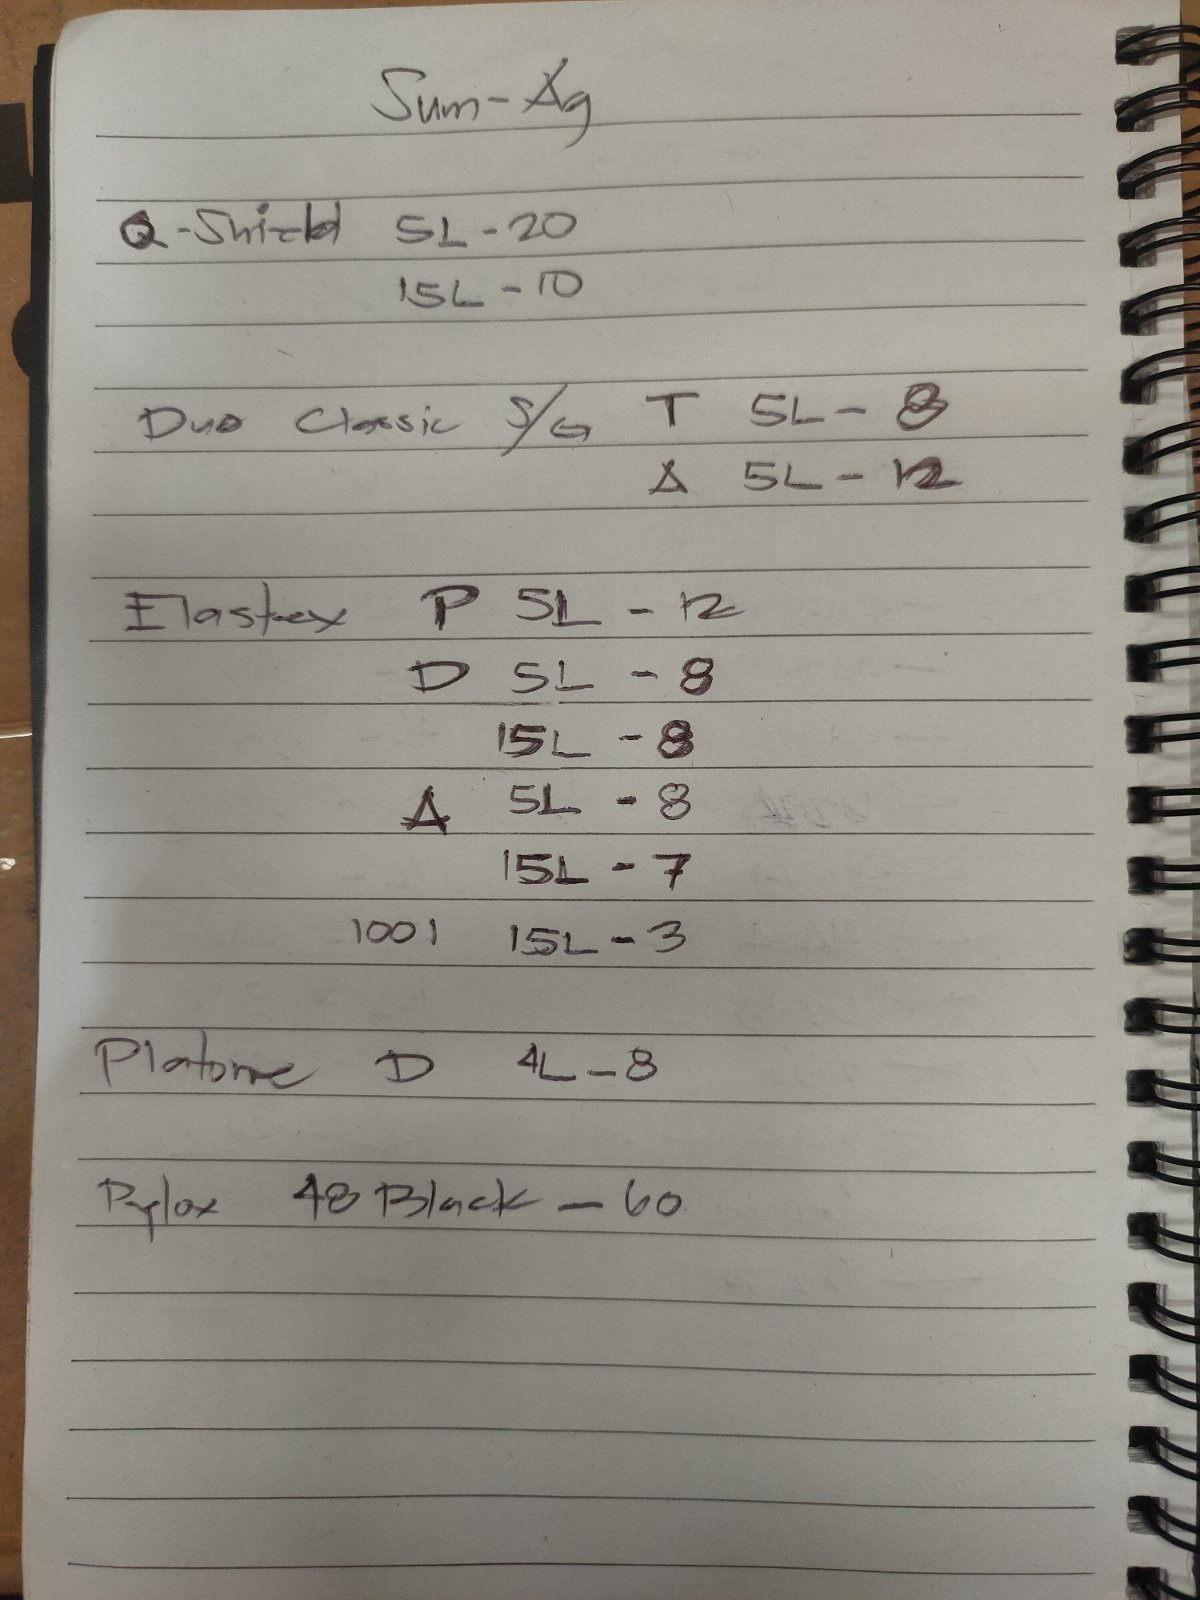 Sum-Ag
Q-Shield 5L - 20
15L - 10
Duo Classic S/G T 5L - 8
A 5L - 12
Elastex P 5L - 12
D 5L - 8
15L - 8
A 5L - 8
15L - 7
1001 15L - 3
D 4L - 8
Pylox 48 Black - 60